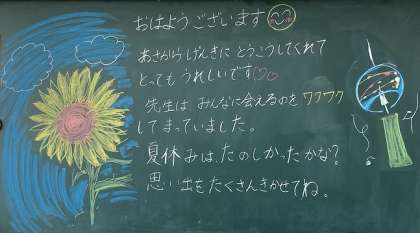 おはようございます
あさから げんきに とうこうしてくれて
とっても うれしいです♡♡
先生は みんなに会えるのを ワクワク
してまっていました。
夏休みは、たのしかったかな?
思い出をたくさんきかせてね。